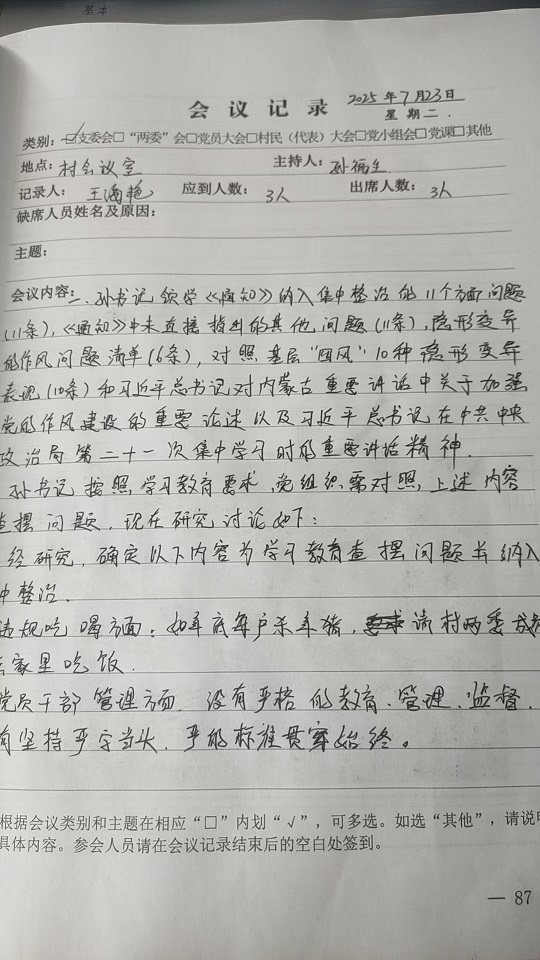 基本
会议记录 2025年7月23日
星期二.
类别：☑支委会□“两委”会□党员大会□村民（代表）大会□党小组会□党课□其他
地点：村会议室 主持人：孙福生
记录人：王海艳 应到人数：3人 出席人数：3人
缺席人员姓名及原因：
主题：
会议内容：一.孙书记领学《通知》纳入集中整治的11个方面问题
(11条),《通知》中未直接指出的其他问题(11条),隐形变异
的作风问题清单(6条),对照基层“四风”10种隐形变异
表现(10条)和习近平总书记对内蒙古重要讲话中关于加强
党的作风建设的重要论述以及习近平总书记在中共中央
政治局第二十一次集中学习时的重要讲话精神.
孙书记按照学习教育要求,党组织需对照上述内容
查摆问题,现在研究讨论如下：
经研究,确定以下内容为学习教育查摆问题并纳入
中整治.
违规吃喝方面：如年底每户杀年猪,请村两委成员
去家里吃饭.
党员干部管理方面,没有严格的教育、管理、监督,
有坚持严字当头,严的标准贯穿始终。
根据会议类别和主题在相应“□”内划“√”，可多选。如选“其他”，请说明
具体内容。参会人员请在会议记录结束后的空白处签到。
— 87